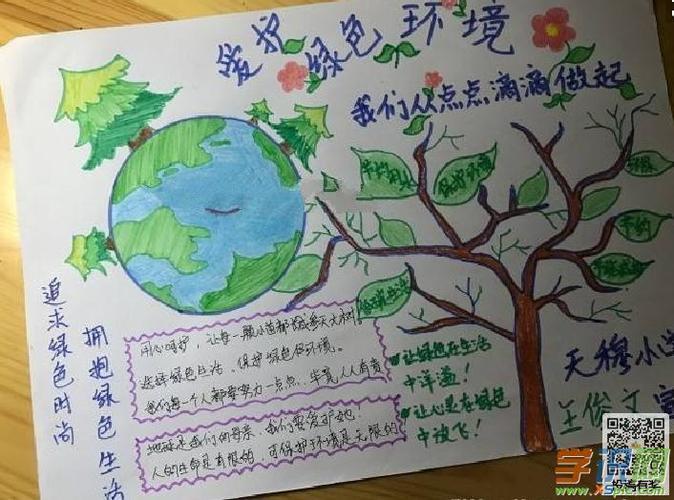 爱护绿色环境
我们从点点滴滴做起
节约用水
保护环境
节约
追求绿色时尚
拥抱绿色生活
用心呵护，让每一颗小苗都长成参天大树！
选择绿色生活，保护绿色环境。
我们每一个人都要努力一点点，毕竟人人有责
地球是我们的母亲，我们要爱护她！
人的生命是有限的，可保护环境是无限的
让绿色在生活
中洋溢！
让心灵在绿色
中放飞！
天穆小
王俊
学识网